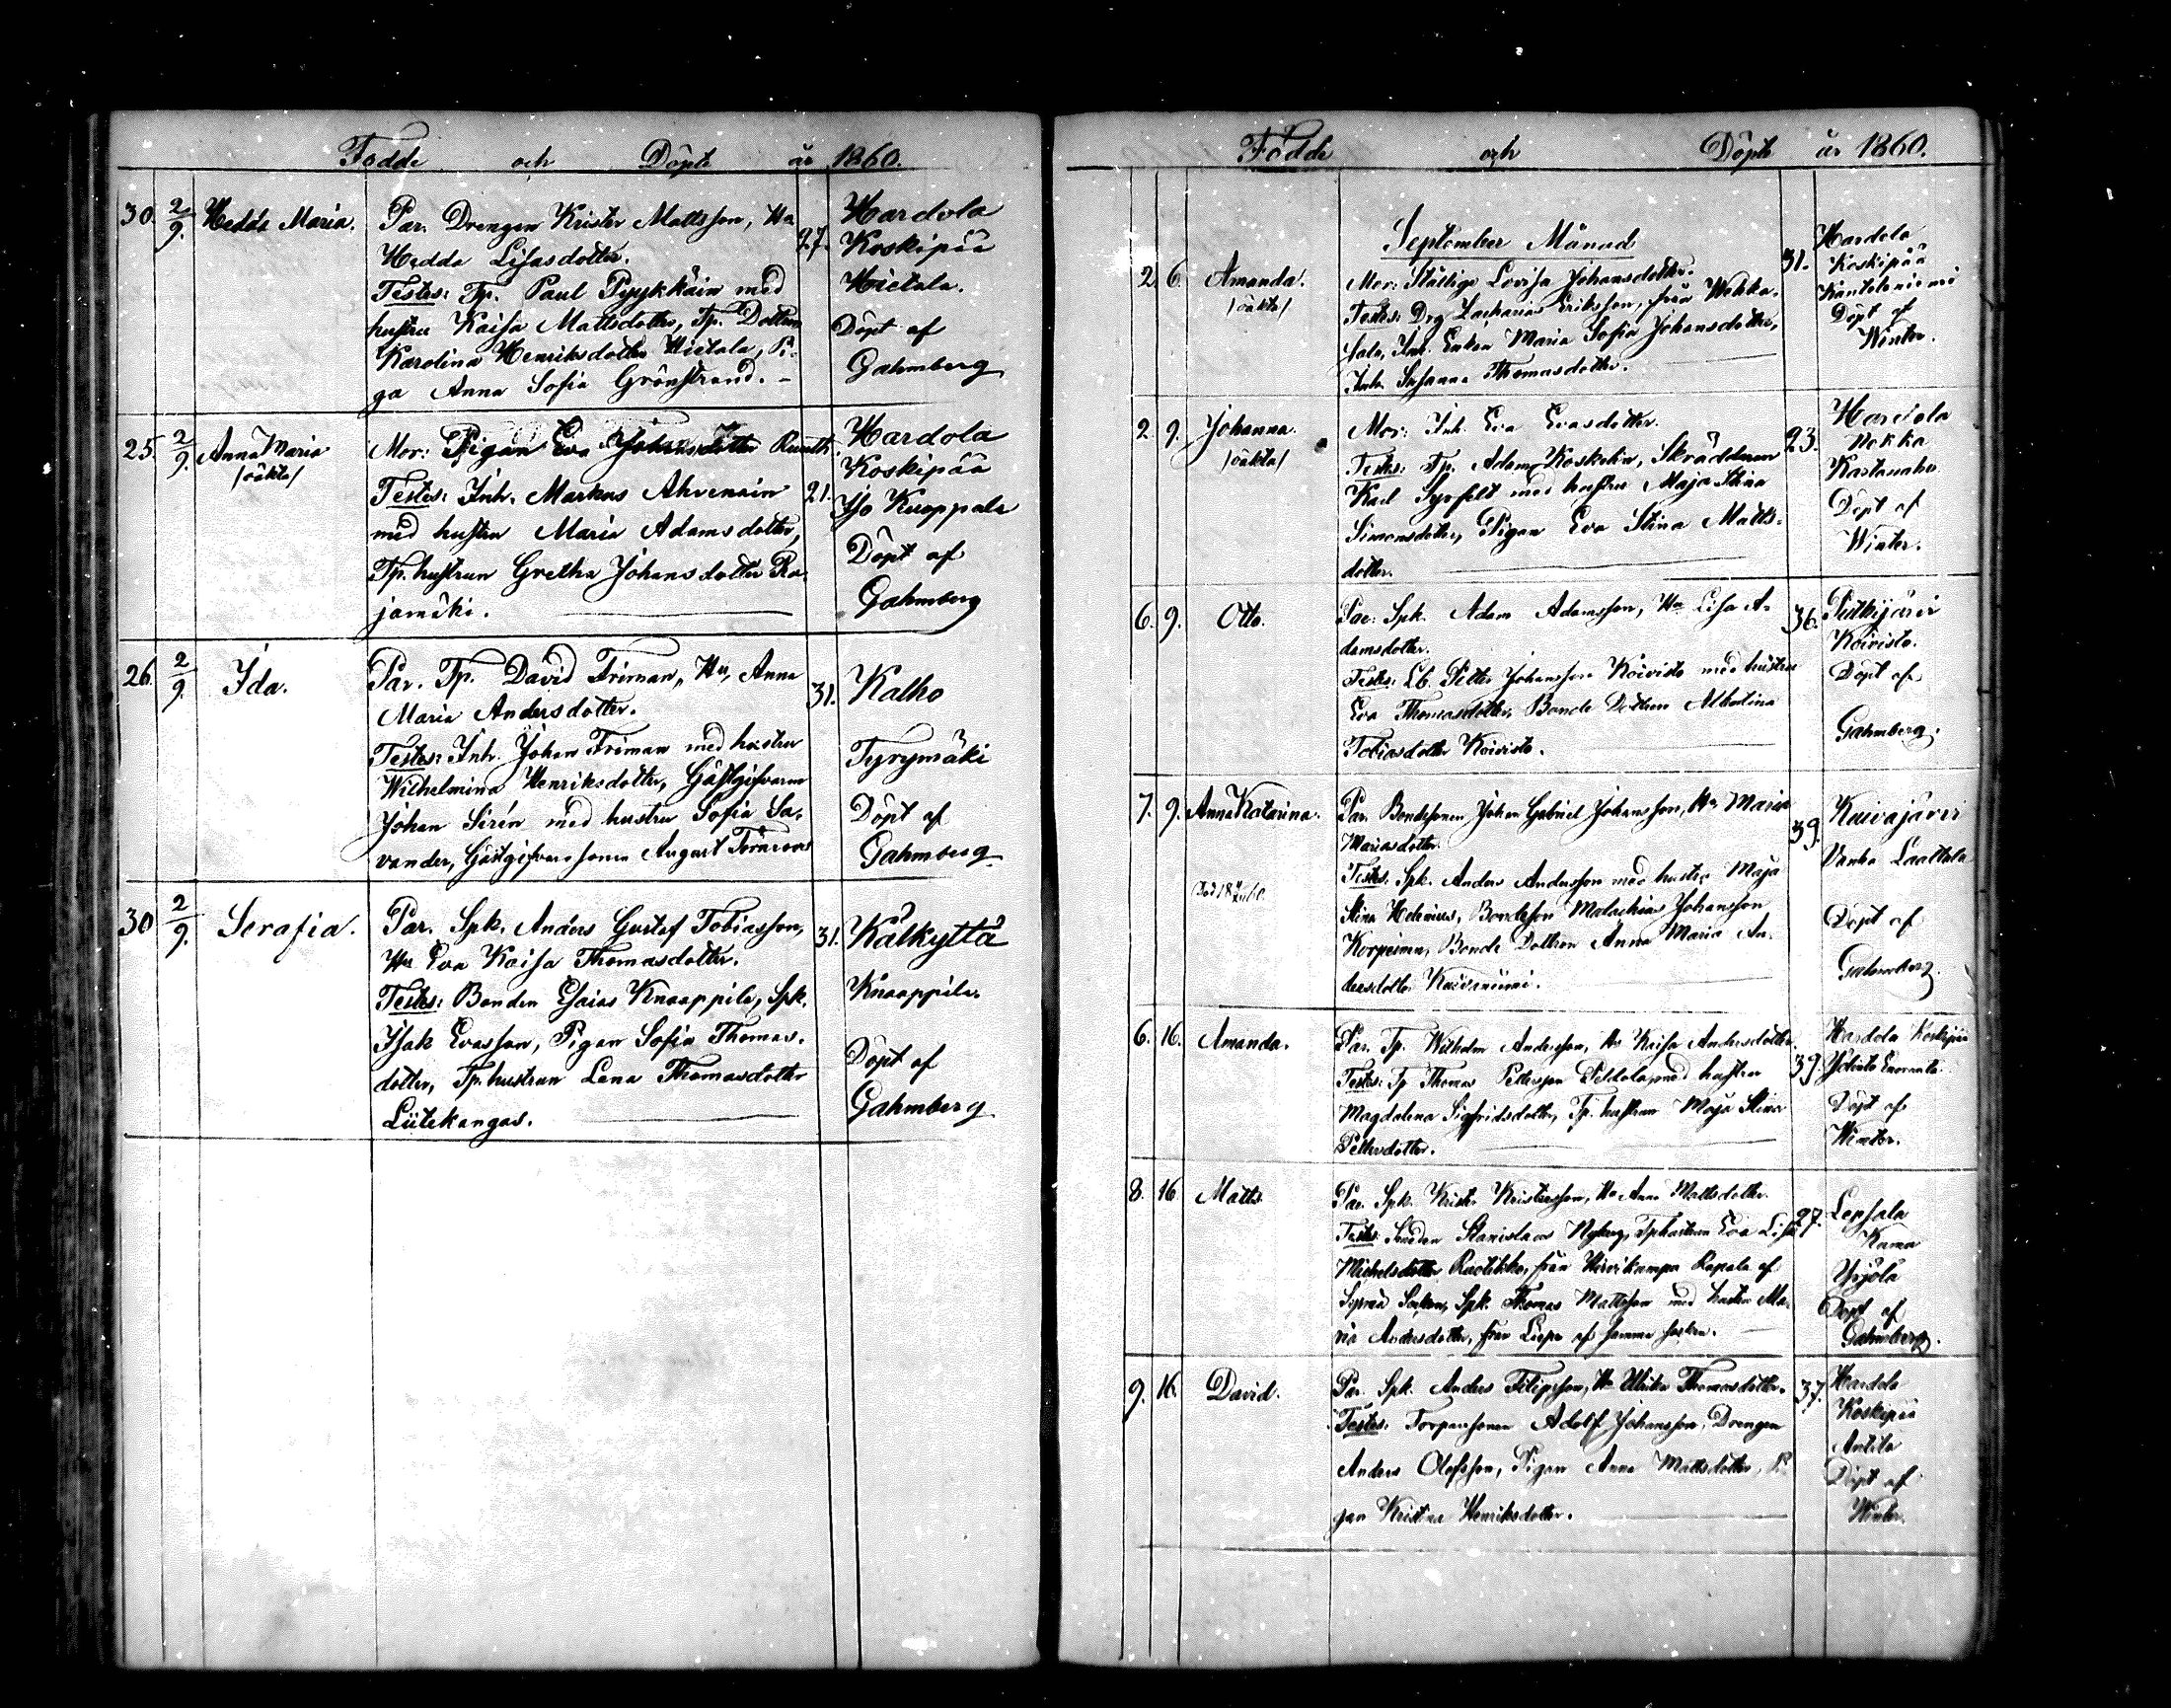 Födde och Döpte år 1860.
30. 2/9. Hedda Maria. Par. Drengen Krister Mattsson, Hu
Hedda Lisasdotter. 27.
Testes: Tp. Paul Pyykkäin med
hustru Kaisa Mattsdotter, Tp. Dottern
Karolina Henriksdotter Hietala, Pi-
ga Anna Sofia Grönstrand. -
Hardola
Koskipää
Hietala.
Döpt af
Gahmberg
25. 2/9. Anna Maria /oäkta/
Mor: Pigan Eva
Testes: Inh. Markus Ahvenain 21.
med hustru Maria Adamsdotter,
Tp. hustrun Gretha Johansdotter Ra-
jamäki.
Hardola
Koskipää
Iso Kuoppala
Döpt af
Gahmberg
26. 2/9. Ida. Par. Tp. David Friman, Hu, Anna 31.
Maria Andersdotter.
Testes: Inh. Johan Friman med hustru
Wilhelmina Henriksdotter, Gästgifvaren
Johan Sirén med hustru Sofia Sa-
vander, Gästgifvaresonen August Törnroos
Kalho
Tyrymäki
Döpt af
Gahmberg
30 2/9. Serafia. Par. Spk. Anders Gustaf Tobiasson, 31.
Hu Eva Kaisa Thomasdotter.
Testes: Bonden Esaias Knaappila, Spk.
Isak Evasson, Pigan Sofia Thomas-
dotter, Tp. hustrun Lena Thomasdotter
Lütekangas.
Kälkyttä
Knaappila.
Döpt af
Gahmberg
Födde och Döpte år 1860.
September Månad
2 6. Amanda. /oäkta/ Mor: Lovisa Johansdotter. 31.
Testes: Drg Zacharias Eriksson, från Wekka-
sala, Inh. Enkan Maria Sofia Johansdotter,
Inh. Susanna Thomasdotter.
Hardola
Koskipää
Kantoloniemi
Döpt af
Winter.
2. 9. Johanna. /oäkta/ Mor: Inh. Eva Evasdotter. 23.
Testes: Tp. Adam Koskelin, Skräddaren
Karl Syrfelt med hustru Maja Stina
Simonsdotter, Pigan Eva Stina Matts-
dotter.
Hardola
Nokka
Kartanaho
Döpt af
Winter.
6. 9. Otto. Par: Spk. Adam Adamsson, Hu Lisa A- 36.
damsdotter.
Testes: Lb. Petter Johansson Koivisto med hustru
Eva Thomasdotter, Bonde Dottern Albertina
Tobiasdotter Koivisto.
Putkijärvi
Koivisto.
Döpt af
Gahmberg.
7. 9. Anna Katarina. Par. Bondesonen Johan Gabriel Johansson, Hu Maria 39.
Mariasdotter.
Testes: Spk. Anders Andersson med hustru Maja
Stina Helenius, Bondeson Malachias Johansson
Korpeinen, Bonde Dottren Anna Maria An-
dersdotter
Kuivajärvi
Vanha Laattala
Döpt af
Gahmberg.
6. 16. Amanda. Par. Tp. Wilhelm Andersson, Hu Kaisa Andersdotter. 39.
Testes: Tp Thomas Pettersson Peldola, med hustru
Magdalena Sigfridsdotter, Tp. hustrun Maja Stina
Pettersdotter.
Hardola Koskipää
Döpt af
Winter.
8. 16. Matts. Par. Spk. Krister Kristersson, Hu Anna Mattsdotter. 27.
Testes: Smeden Stanislaus Nyberg, Tphustrun Eva Lisa
Michelsdotter Rautikko, från Hirvikumpu Rapala af
Socken, Spk. Thomas Mattsson med hustru Ma-
ria Andersdotter, från af samma socken.
Leppala
Kuma
Yrjölä
Döpt af
Gahmberg.
9. 16. David. Par. Spk. Anders Filipsson, Hu Ulrika Thomasdotter. 37.
Testes: Torparsonen Adolf Johansson, Drengen
Anders Olofsson, Pigan Anna Mattsdotter, Pi-
gan Kristina Henriksdotter.
Hardola
Koskipää
Antila
Döpt af
Winter.